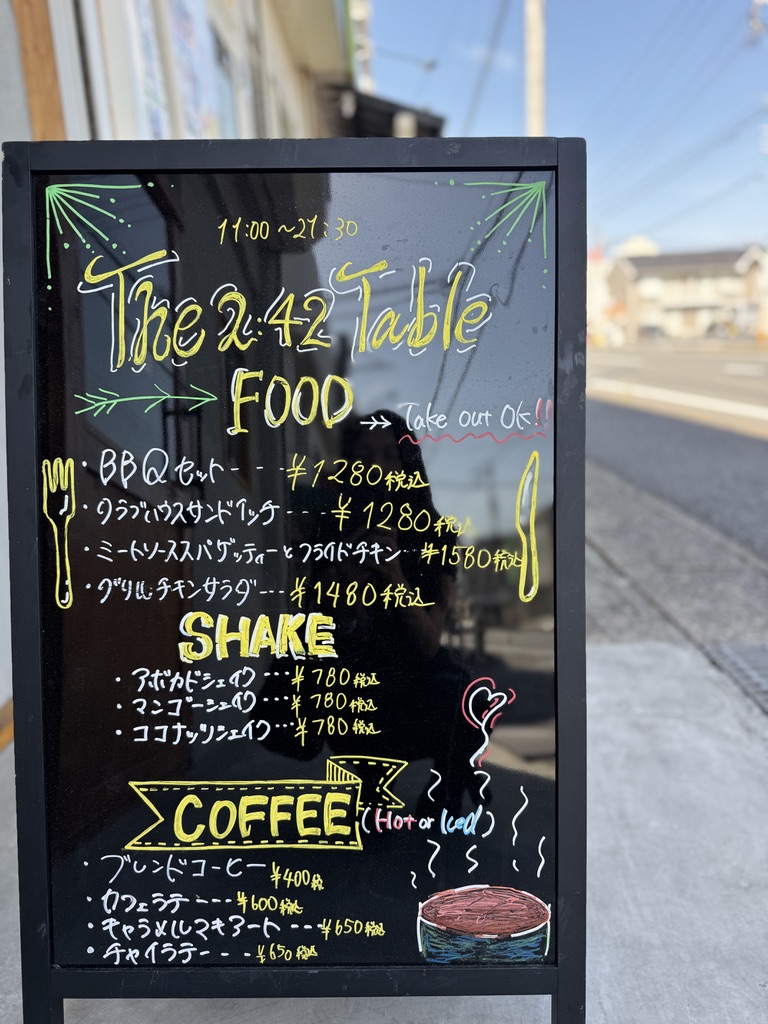 11:00～21:30
The 2:42 Table
FOOD → Take out OK!!
・BBQセット---¥1280税込
・クラブハウスサンドイッチ---¥1280税込
・ミートソーススパゲッティーとフライドチキン…¥1580税込
・グリルチキンサラダ---¥1480税込
SHAKE
・アボカドシェイク…¥780税込
・マンゴーシェイク…¥780税込
・ココナッツシェイク…¥780税込
COFFEE (Hot or Iced)
・ブレンドコーヒー ¥400税
・カフェラテ----¥600税込
・キャラメルマキアート---¥650税込
・チャイラテ----¥650税込